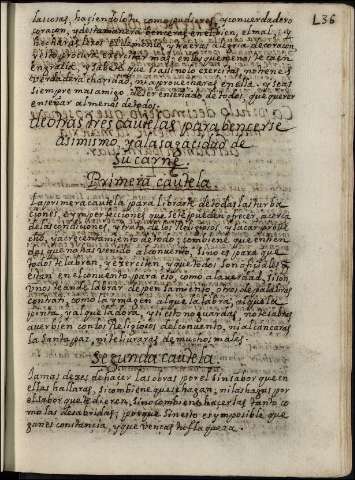 L36
las cosas, haziendolo tu como pudieres, y con verdadero
coraçon, y desta manera benceras en el bien, el mal; y
hecharas lexos el demonio, y traeras alegria de coraçon,
y esto procura exercitar mas, en los que menos te caen
en gracia; y sabete que si asi no lo exercitas, no llegaras
verdadera charidad, ni aprobecharas en ella. y seas
siempre mas amigo de ser enseñado de todos, que querer
enseñar al menos de todos.
Otras tres cautelas para bencerse
asimismo, y a la sagacidad de
su carne.
Primera cautela.
La primera cautela para librarte de todas las turba
ciones, e ymperfecciones que se te pueden ofrecer, acerca
de las condiciones, y trato de los Religiosos y sacar probe
cho, y acrecentamiento de todo; conviene que entien
das que no has venido al convento, sino es para que
todos te labren, y exerciten, y que todos son oficiales que
estan en el convento para eso, como a la verdad, si son.
Unos te an de labrar de pensamiento, otros de palabras
contra ti, como la ymagen al que la labra, al que la
pinta, y al que la dora, y si esto no guardas, no sabras
aver bien con los Religiosos del convento, ni alcançaras
la santa paz, ni te libraras de muchos males.
Segunda cautela
Jamas dexes de hacer las obras, por el sinsabor que en
ellas hallaras, si combiene que se hagan; ni las hagas por
el sabor que te dieren, sino combiene hacerlas tanto co
mo las desabridas; porque sin esto es ymposible que
ganes constancia, y que venças tu flaqueza.